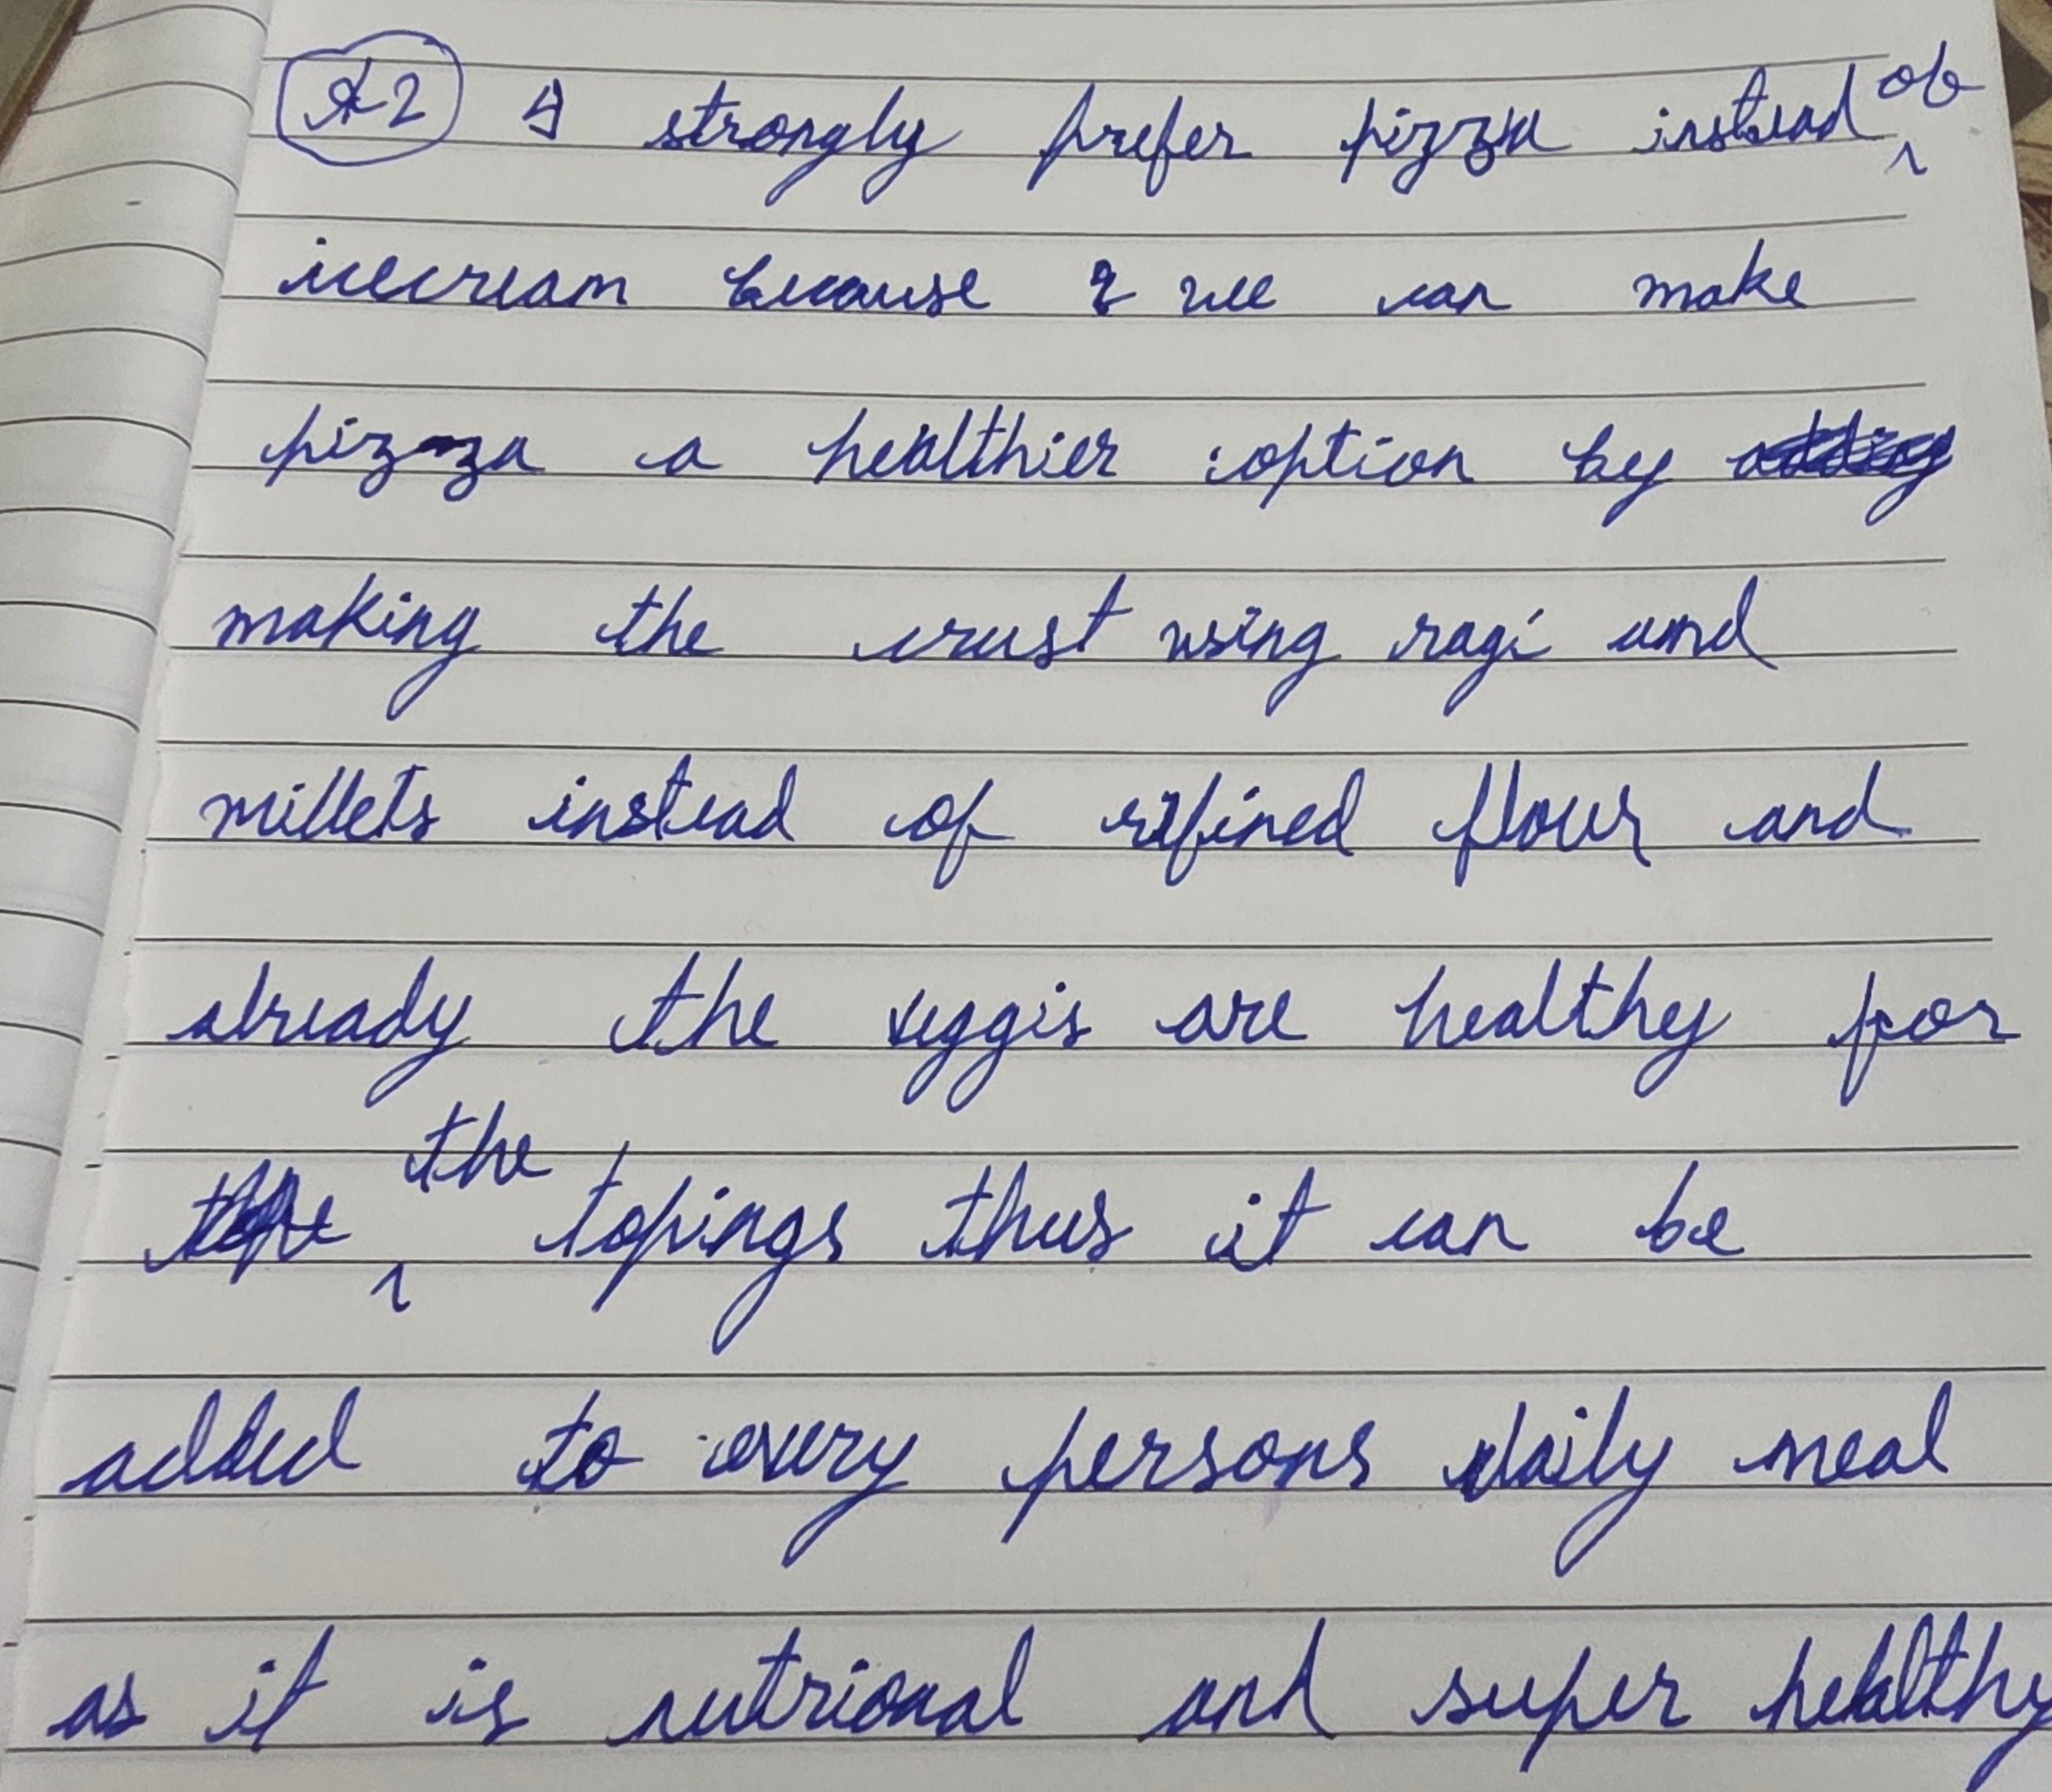 A2 I strongly prefer pizza instead of
icecream because we can make
pizza a healthier option by
making the crust using ragi and
millets instead of refined flour and
already the veggis are healthy for
the topings thus it can be
added to every persons daily meal
as it is nutrional and super healthy